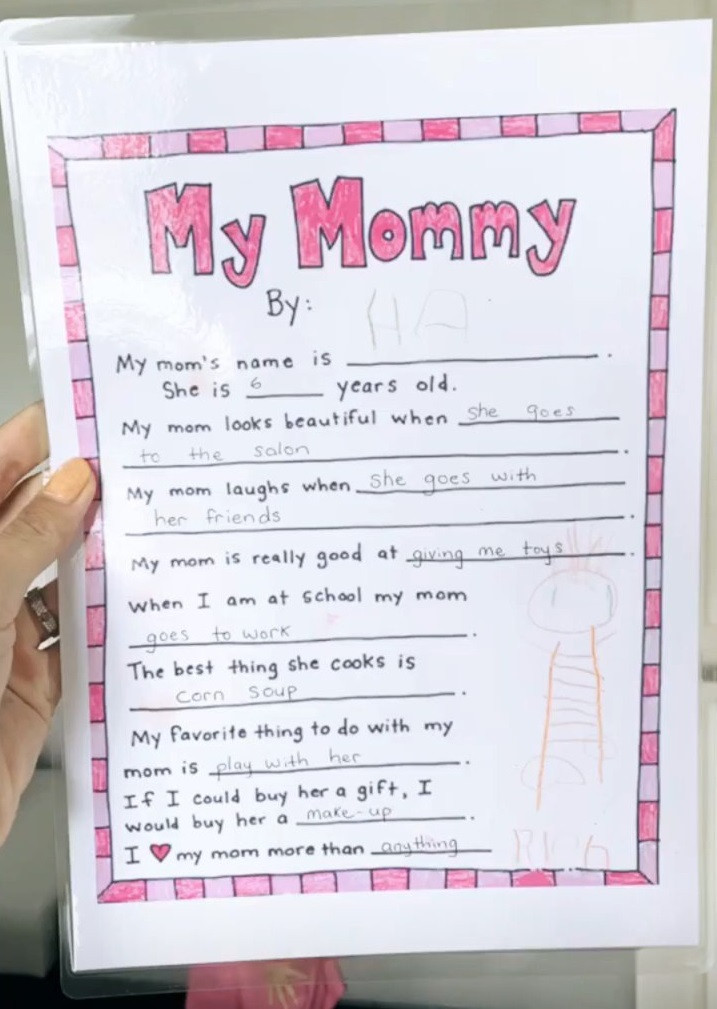 My Mommy
By: HA
My mom's name is ____________.
She is 6 years old.
My mom looks beautiful when she goes
to the salon.
My mom laughs when she goes with
her friends.
My mom is really good at giving me toys.
When I am at school my mom
goes to work.
The best thing she cooks is
corn soup.
My favorite thing to do with my
mom is play with her.
If I could buy her a gift, I
would buy her a make-up.
I ♥ my mom more than anything